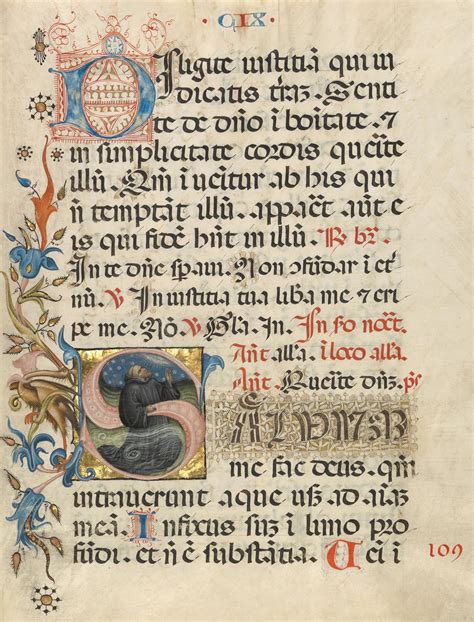 · CIX ·
Diligite iustitiā qui iu
dicatis t̄rā. Senti
te de dn̄o ī boītate ⁊
in simplicitate cordis querite
illū. Qm̄ īuēitur ab his qui
n̄ temptāt illū. apparet aūt e
is qui fidē hn̄t in illū. R. br.
In te dn̄e speraui. Non ɔfūdar ī et̄
nū. V In iustitia tua libera me ⁊ eri
pe me. Nō. V Gl̄a. In. In
Ant alla. ī loco alla.
Ant. dn̄z. ps
SALVVM
me fac deus. qm̄
intrauerunt aque usqꝫ ad aīaꝫ
meā. Infixus suꝫ ī limo pro
fūdi. et n̄ ē substātia. Uēi ī
109